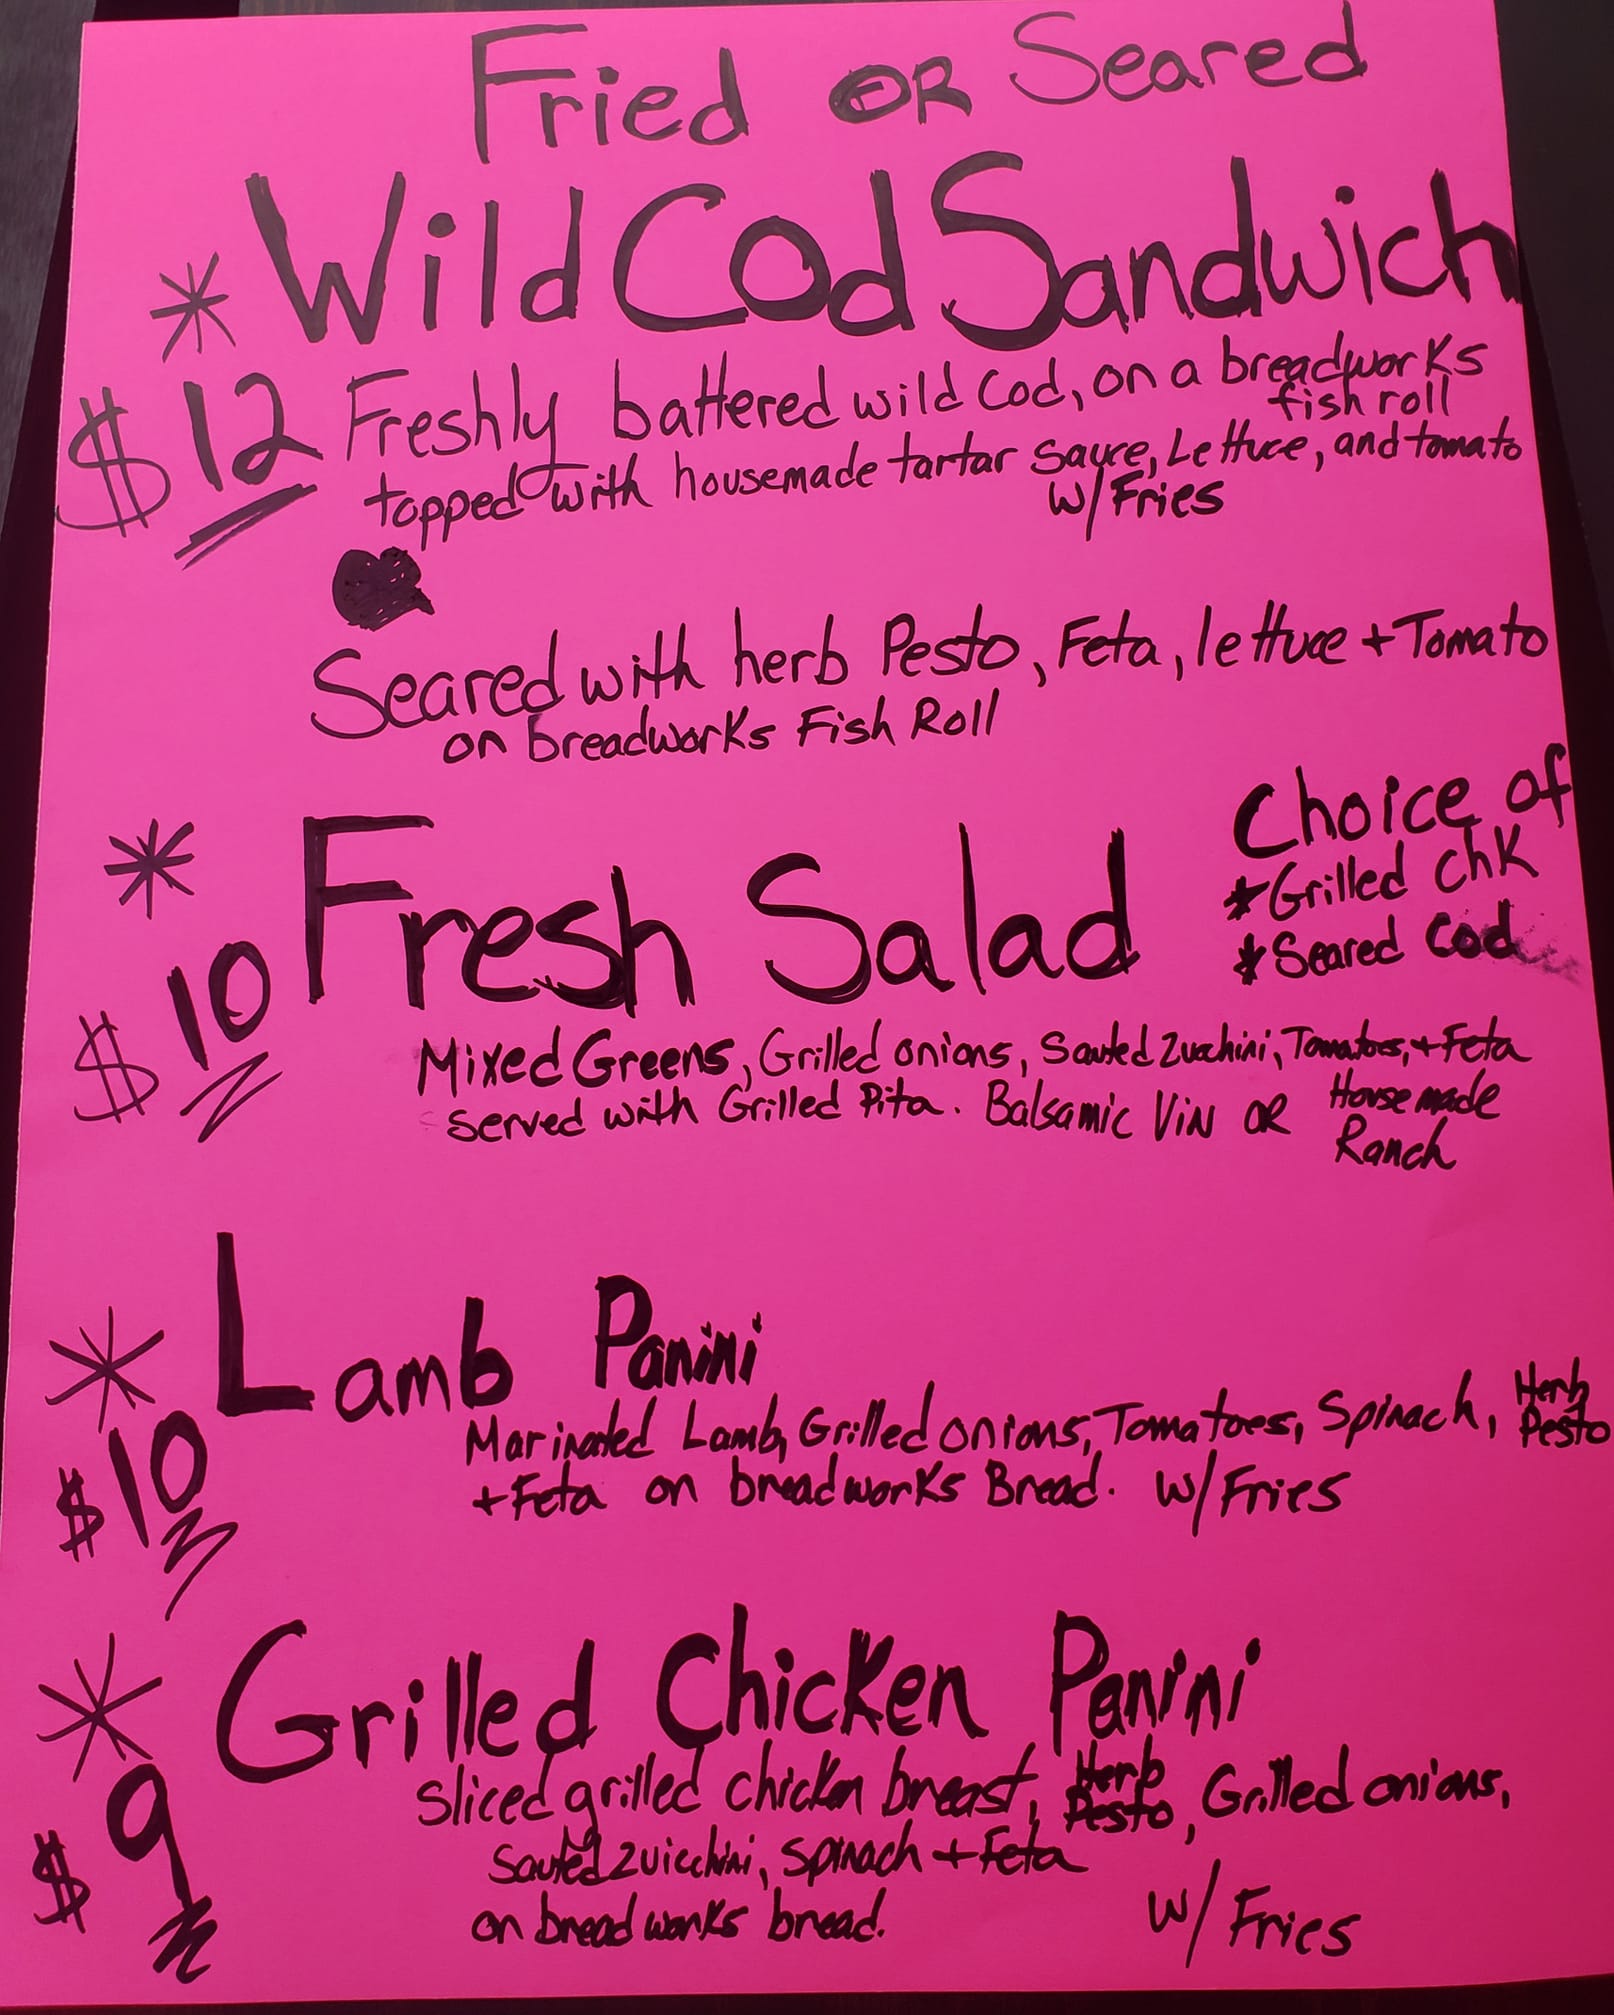 Fried OR Seared
* Wild Cod Sandwich
$12 Freshly battered wild Cod, on a breadworks
fish roll
topped with housemade tartar sauce, Lettuce, and tomato
w/ Fries
Seared with herb Pesto, Feta, lettuce + Tomato
on breadworks Fish Roll
* Fresh Salad
$10
Choice of
* Grilled ChK
* Seared Cod
Mixed Greens, Grilled onions, Sauted Zucchini, Tomatoes, + Feta
served with Grilled Pita. Balsamic Vin OR House made
Ranch
* Lamb Panini
$10
Marinated Lamb, Grilled onions, Tomatoes, Spinach, Herb
Pesto
+ Feta on breadworks Bread. w/ Fries
* Grilled Chicken Panini
$9
Sliced grilled chicken breast, Herb
Pesto, Grilled onions,
Sauted Zuicchini, Spinach + Feta
on breadworks bread.
w/ Fries